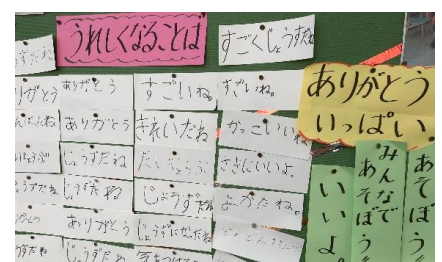 うれしくなることば
すごくじょうずだね
うずだね
りがとう
ありがとう
すごいね。
すごいね。
ありがとう
いっぱい
ありがとう
きれいだね
かっこいいね
じょうずだね
だいじょうぶ
さきにいいよ。
じょうずだね
じょうずだね
よかったね。
ありがとう
じょうずになったね
じょうずだね
みんなで
あそぼう
いいよ。
あそぼう